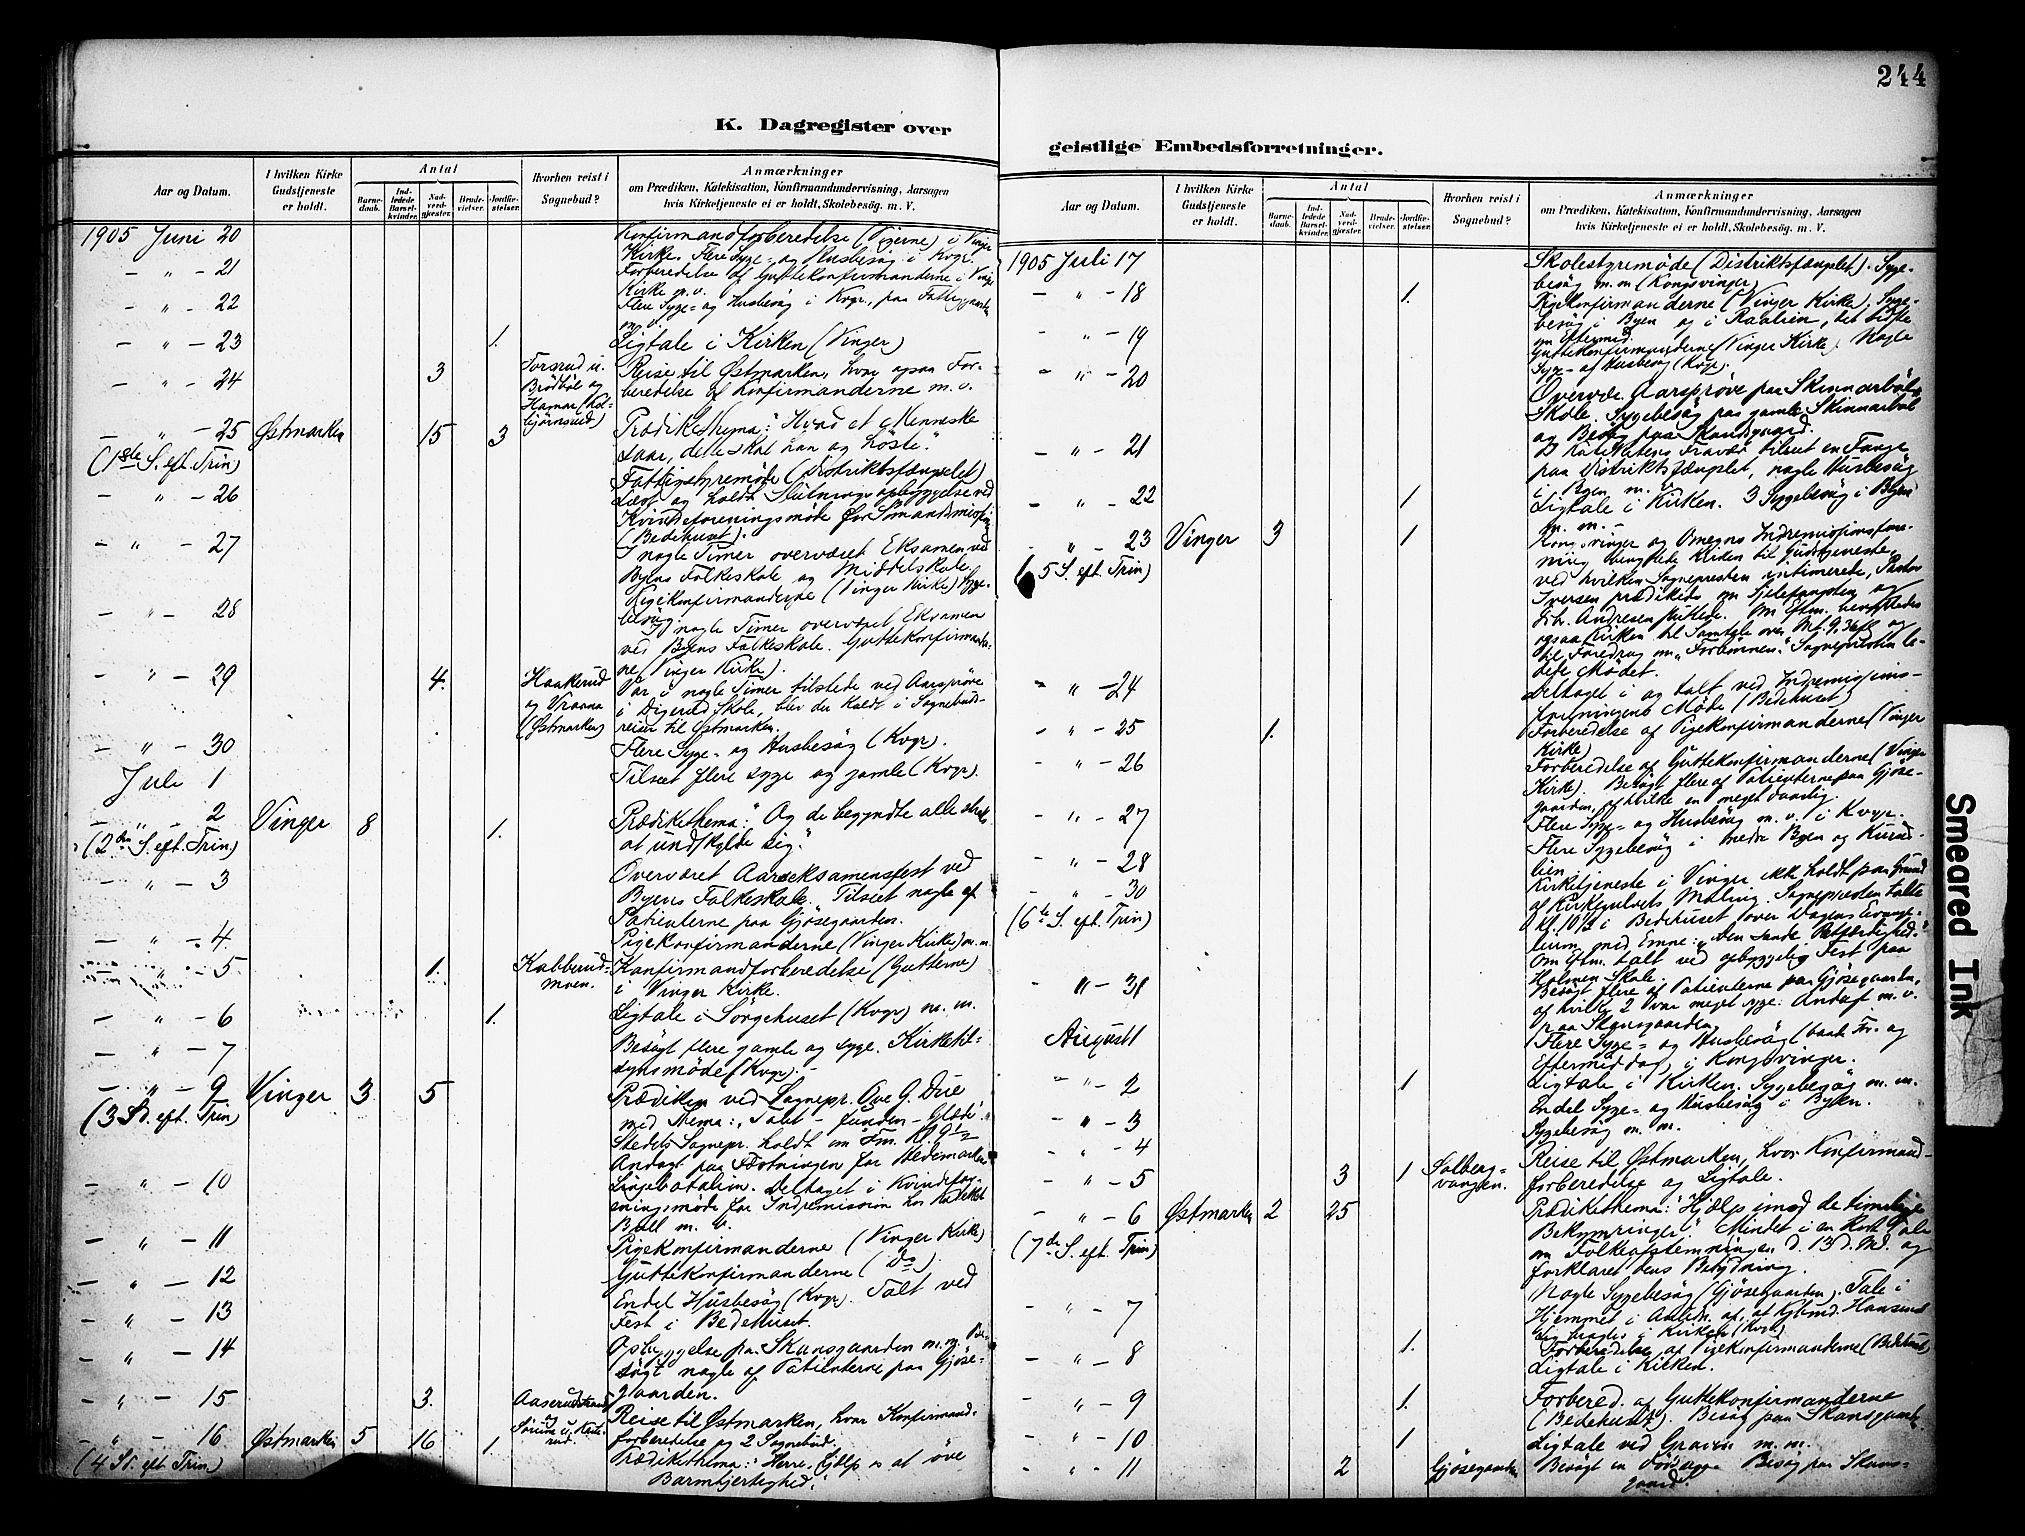 244
K. Dagregister over
geistlige Embedsforretninger.
Aar og Datum.
I hvilken Kirke Gudstjeneste er holdt.
Antal
Barnedaab.
Indledede Barselkvinder.
Nadverdgjester.
Brudevielser.
Jordfæstelser.
Hvorhen reist i Sognebud?
Anmærkninger
om Prædiken, Katekisation, Konfirmandundervisning, Aarsagen
hvis Kirketjeneste ei er holdt, Skolebesøg. m. V.
1905 Juni 20
Konfirmandforberedelse (Pigerne) i Vinger
Kirke. Flere Syge- og Husbesøg i Kvgr.
- " - 21
Forberedelse af Guttekonfirmanderne i Vinger
Kirke m. v.
- " - 22
Flere Syge- og Husbesøg i Kvgr., paa Fattiggaarden
m. v.
- " - 23 1.
Ligtale i Kirken (Vinger)
- " - 24 3
Reise til Østmarken, hvor ogsaa For-
beredelse af Konfirmanderne m. v.
- " - 25 Østmarken 15 3
(1ste S. eft. Trin)
Prædikethema: "Hvad et Menneske
saar, dette skal han og høste".
Fattigstyremøde (Distriktsfængslet)
- " - 26
Læst og holdt Slutningsopbyggelse ved
Kvindeforeningsmøde for Sømandsmission
(Bedehuset).
- " - 27
I nogle Timer overværet Eksamen ved
Byens Folkeskole og Middelskole.
Pigekonfirmanderne (Vinger Kirke) Syge-
besøg.
- " - 28
I nogle Timer overværet Eksamen
ved Byens Folkeskole. Guttekonfirmander-
ne (Vinger Kirke).
- " - 29 4. Haakerud
og Vranna
(Østmarken)
Var i nogle Timer tilstede ved Aarsprøve
i Digerud Skole, blev der kaldt i Sognebuds-
reiser til Østmarken.
- " - 30
Flere Syge- og Husbesøg (Kvgr).
Juli 1
Tilseet flere syge og gamle (Kvgr).
- " - 2 Vinger 8 1.
(2den S. eft. Trin)
Prædikethema: "Og de begyndte alle strax
at undskylde sig".
- " - 3
Overværet Aarseksamensfest ved
Byens Folkeskole. Tilseet nogle af
Patienterne paa Gjøsegaarden.
- " - 4.
Pigekonfirmanderne (Vinger Kirke) m. m.
- " - 5 1. Kabberud-
moen.
Konfirmandforberedelse (Gutterne)
i Vinger Kirke.
- " - 6 1.
Ligtale i Sørgehuset (Kvgr) m. m.
- " - 7
Besøgt flere gamle og syge. Kirketil-
synsmøde (Kvgr). -
- " - 9 Vinger 3 5
(3 S. eft. Trin)
Prædiken ved Sognepr. Ove G. Due
med Thema: "Tabt - funden - Glæde".
Stedets Sognepr. holdt om Fm. Kl. 9 1/2
Andagt paa Fæstningen for Hedemarkens
Linjebatalion. Deltaget i Kvindefor-
eningsmøde for Indremission hos
- " - 10
m. v.
- " - 11
Pigekonfirmanderne (Vinger Kirke)
- " - 12
Guttekonfirmanderne ( Do ).
- " - 13
Endel Husbesøg (Kvgr). Talt ved
Fest i Bedehuset.
- " - 14
Opbyggelse paa Skansgaarden m. m. Be-
søgt nogle af Patienterne paa Gjøse-
gaarden.
- " - 15 3.
Reise til Østmarken, hvor Konfirmand-
forberedelse og 2 Sognebud.
- " - 16 Østmarken 5 16 1
(4 S. eft. Trin)
Prædikethema: "Herre, hjælp os at øve
Barmhjertighed".
Aar og Datum.
I hvilken Kirke Gudstjeneste er holdt.
Antal
Barnedaab.
Indledede Barselkvinder.
Nadverdgjester.
Brudevielser.
Jordfæstelser.
Hvorhen reist i Sognebud?
Anmærkninger
om Prædiken, Katekisation, Konfirmandundervisning, Aarsagen
hvis Kirketjeneste ei er holdt, Skolebesøg. m. V.
1905 Juli 17
Skolestyremøde (Distriktsfængslet). Syge-
besøg m. m (Kongsvinger)
- " - 18 1.
Pigekonfirmanderne (Vinger Kirke). Syge-
besøg i Byen og i Raalien, det sidste
om Eftermid.
- " - 19
Guttekonfirmanderne (Vinger Kirke) Nogle
Syge- af Husbesøg (Kvgr).
- " - 20
Overvær. Aarsprøve paa Skinnarbøl
Skole. Sygebesøg paa gamle Skinnarbøl
og Besøg paa Skansgaard.
- " - 21
I Katekatens Fravær tilseet en Fange
paa Distriktsfængslet, nogle Husbesøg
i Byen m. v.
- " - 22 1
Ligtale i Kirken. 3 Sygebesøg i Byen
m. m. -
- " - 23 Vinger 3 1
(5 S. eft. Trin)
Kongsvinger og Omegns Indremissionsfore-
ning benyttede Kirken til Gudstjeneste,
ved hvilken Sognepresten intimerede, Pastor
Iversen prædikede om Sjelefangsten og
Andresen sluttede. Om Eftm. benyttedes
ogsaa Kirken til Samtale over Mt. 9. 36 ff og
til Foredrag om "Forbønnen". Sognepresten le-
dede Mødet.
- " - 24
Deltaget i og talt ved Indremissions-
foreningens Møde (Bedehuset)
- " - 25 1.
Forberedelse af Pigekonfirmanderne (Vinger
Kirke)
- " - 26
Forberedelse af Guttekonfirmanderne (Vinger
Kirke). Besøgt flere af Patienterne paa Gjøse-
gaarden, af hvilke en meget daarlig.
- " - 27
Flere Syge- og Husbesøg m. v. i Kvgr.
- " - 28
Flere Sygebesøg i nedre Byen og
lien
- " - 30
(6te S. eft. Trin)
Kirketjeneste i Vinger ikke holdt paa Grund
af Kirkegulvets Maling. Sognepresten talte
Kl. 10 1/2 i Bedehuset over Dagens Evange-
lium med Emne: "Den sande Retfærdighed."
Om Eftm. talt ved opbyggelig Fest paa
Holmen Skole.
- " - 31
Besøgt flere af Patienterne paa Gjøsegaarden,
af hvilke 2 var meget syge. Andagt m. v.
paa Skansgaarden
August 1
Flere Syge- og Husbesøg (baade For- og
Eftermiddag) i Kongsvinger.
- " - 2 1
Ligtale i Kirken. Sygebesøg m. m.
- " - 3
Endel Syge- og Husbesøg i Byen.
- " - 4
Sygebesøg m. m.
- " - 5 3 1 Solberg-
vangen.
Reise til Østmarken, hvor Konfirmand-
forberedelse og Ligtale.
- " - 6 Østmarken 2 25
(7de S. eft. Trin)
Prædikethema: "Hjælp imod de timelige
Bekymringer". Mindet i en kort Tale
om Folkeafstemningen d. 13 d. Md. og
forklaret dens Betydning.
- " - 7
Nogle Sygebesøg (Gjøsegaarden). Tale i
Hjemmet i Anledn. af, at Kjøbmd. Hansens
Lig bragtes i Kirken (Kvgr)
- " - 8 1.
Forberedelse af Pigekonfirmanderne (Bedehuset)
Ligtale i Kirken.
- " - 9 1.
Forbered. af Guttekonfirmanderne
(Bedehuset). Besøg paa Skansgaard.
- " - 10 1
Ligtale ved Graven m. m.
- " - 11 2 Gjøsegaarden
Besøgt en Besøg paa Skans-
gaard.
Smeared Ink